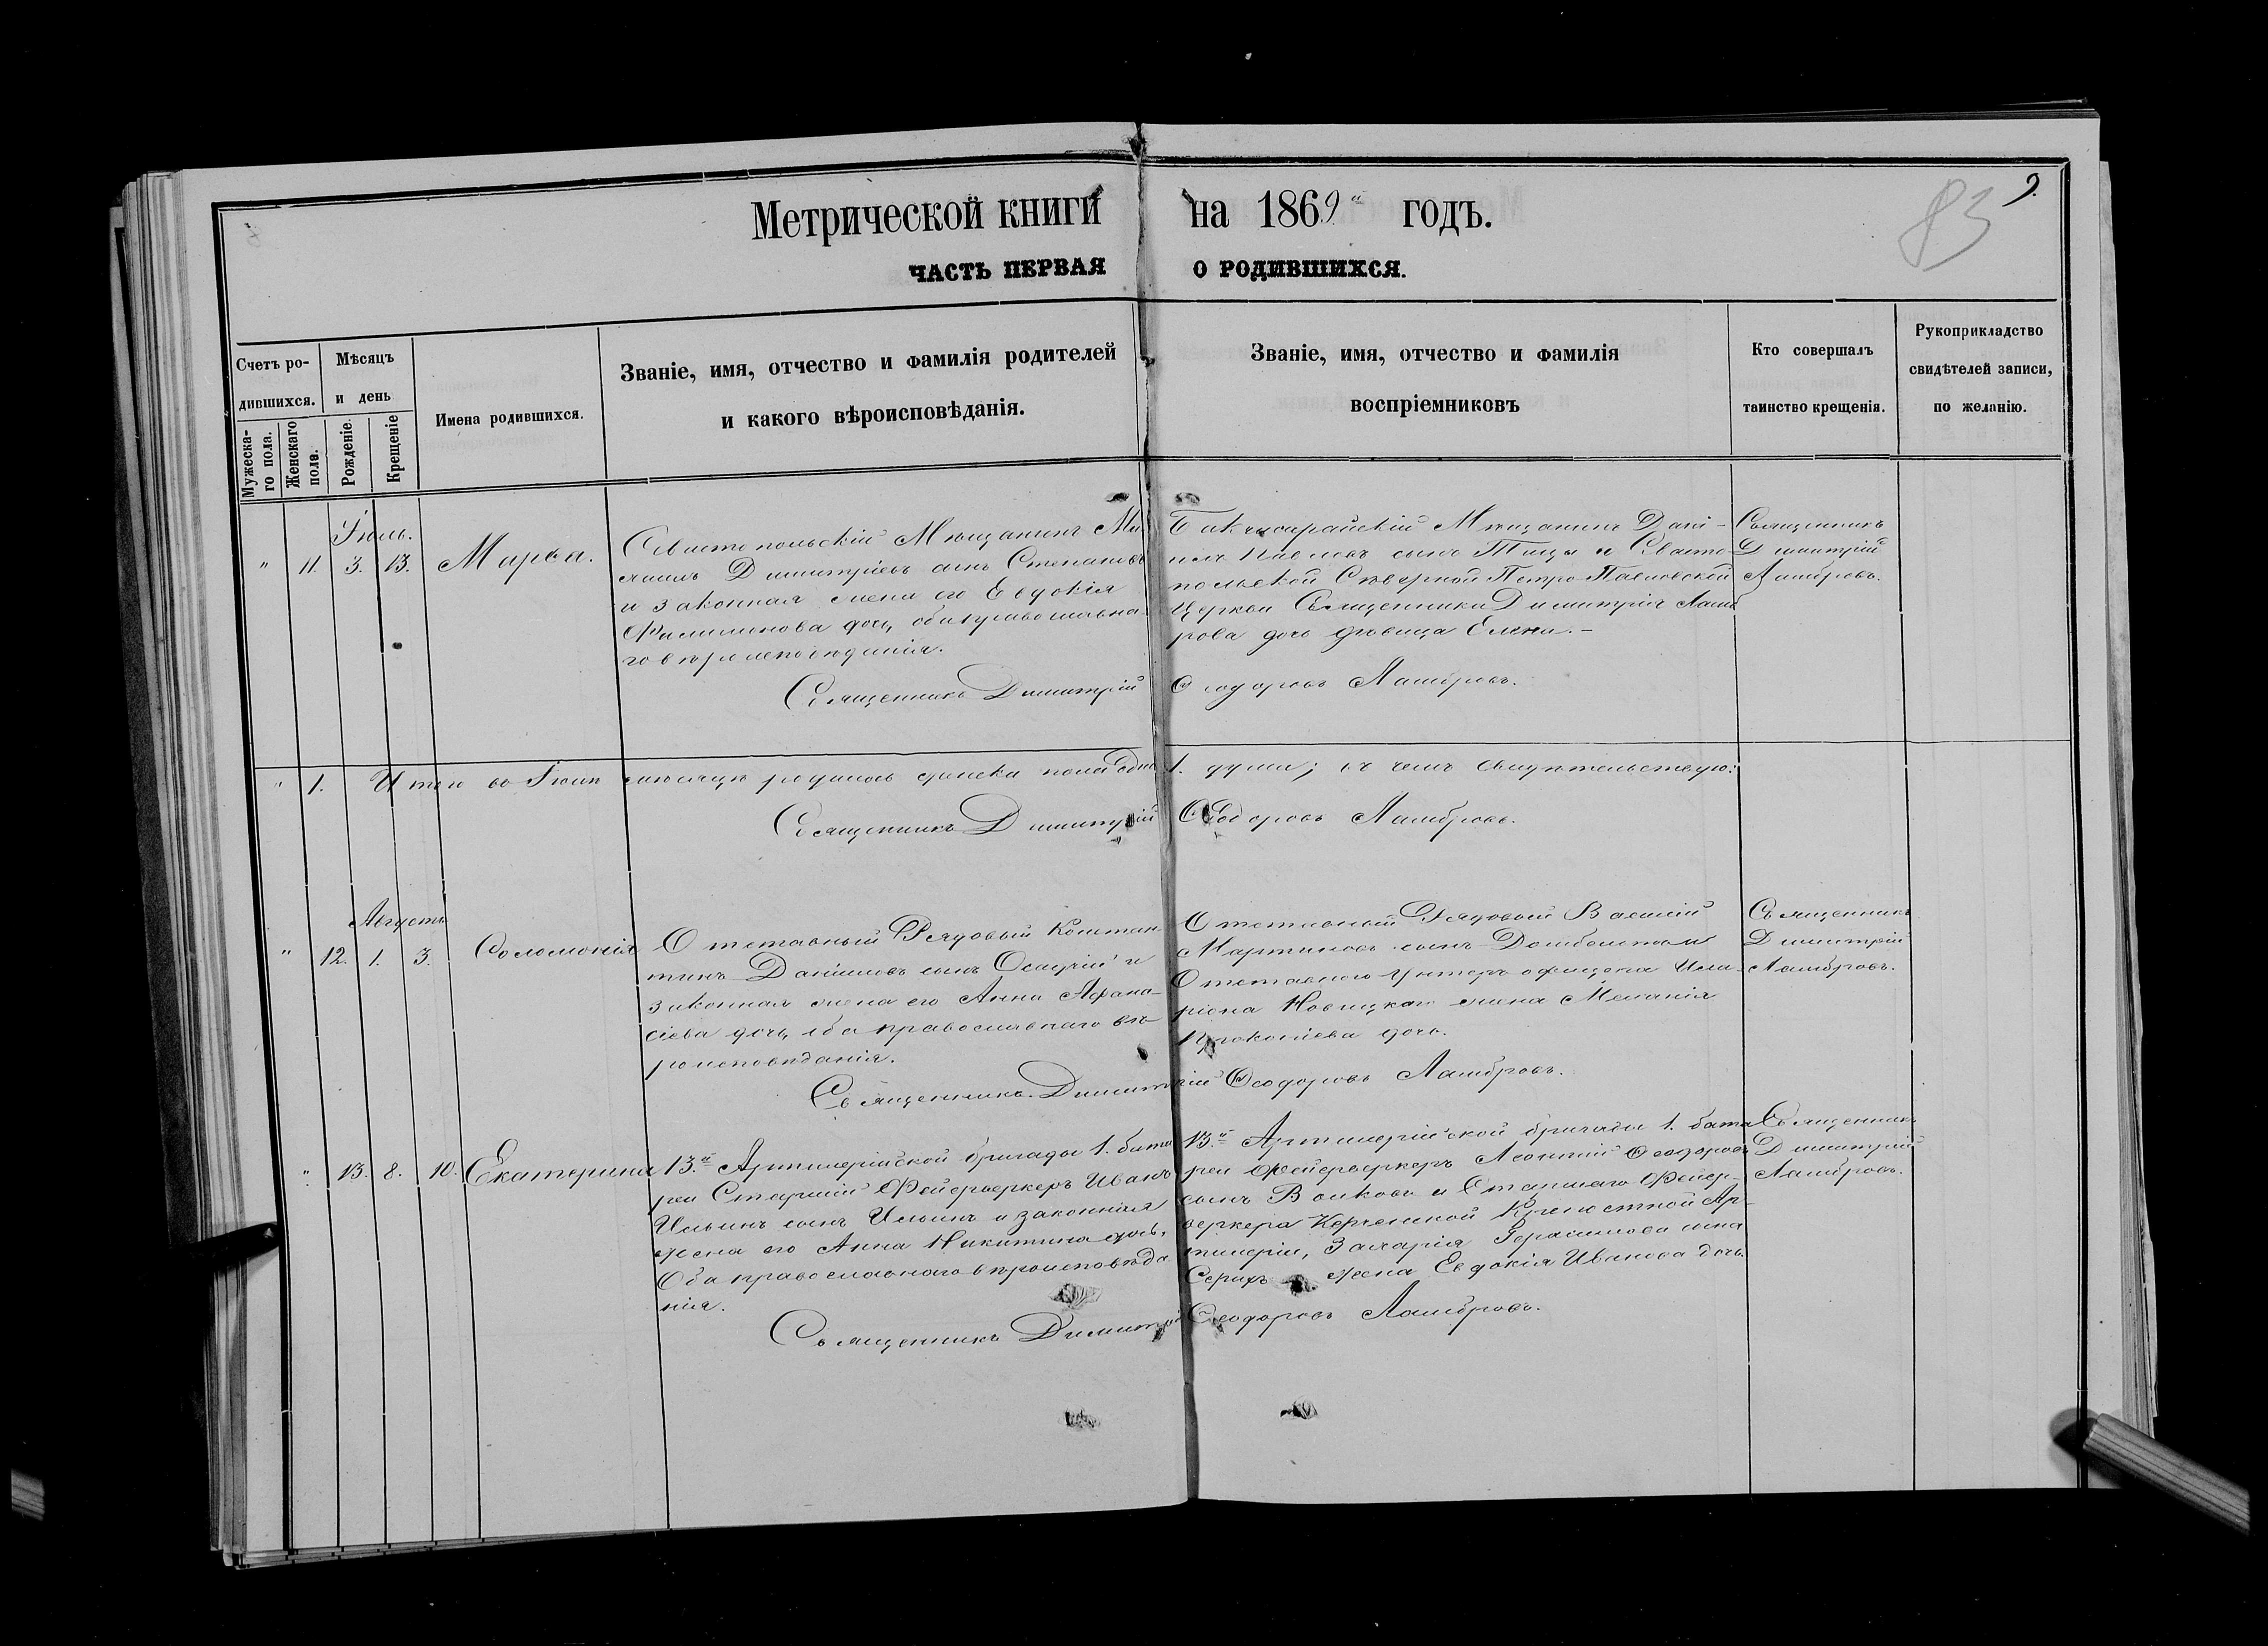 Метрической книги на 1869й годъ.
83
9.
ЧАСТЬ ПЕРВАЯ О РОДИВШИХСЯ.
Счетъ ро-
дившихся.
Мужеска-
го пола.
Женскаго
пола.
Мѣсяцъ
и день
Рожденіе.
Крещеніе
Имена родившихся.
Званіе, имя, отчество и фамилія родителей
и какого вѣроисповѣданія.
Званіе, имя, отчество и фамилія
воспріемниковъ
Кто совершалъ
таинство крещенія.
Рукоприкладство
свидѣтелей записи,
по желанію.
Іюль.
" 11. 3. 13. Марѳа.
Севастопольскій Мѣщанинъ Ми-
хаилъ Димитріевъ сынъ Степановъ
и законная жена его Евдокія
Филимонова дочь, оба православна-
го вѣроисповѣданія.
Бакчисарайскій Мѣщанинъ Дані-
илъ Павловъ сынъ Тищы и Севасто-
польской Сѣверной Петро-Павловской
Церкви Священника Димитрія Ламб
рова дочь дѣвица Елена.-
Священникъ
Димитрій
Ламбровъ.
Священникъ Димитрій Ѳеодоровъ Ламбровъ.
" 1. Итого въ Іюлѣ мѣсяцѣ родилось женска пола одна 1. душа; въ чемъ свидѣтельствую:
Священникъ Димитрій Ѳеодоровъ Ламбровъ.
Августъ
" 12. 1. 3. Соломонія
Отставный Рядовый Констан-
тинъ Даніиловъ сынъ и
законная жена его Анна Афана-
сіева дочь, оба православнаго вѣ-
роисповѣданія.
Отставный Рядовый Василій
Мартиновъ сынъ и
Отставнаго Унтеръ офицера Ила-
ріона Новицкаго жена Меланія
Прокопіева дочь.
Священникъ
Димитрій
Ламбровъ.
Священникъ Димитрій Ѳеодоровъ Ламбровъ.
" 13. 8. 10. Екатерина
13.й Артиллерійской бригады 1. бата
реи Старшій Фейерверкеръ Иванъ
Ильинъ сынъ Ильинъ и законная
жена его Анна Никитина дочь,
Оба православнаго вѣроисповѣда
нія.
13.й Артиллерійской бригады 1. бата
реи Фейерверкеръ Леонтій Ѳеодоровъ
сынъ Волковъ и Старшаго Фейер-
веркера Керченской Крѣпостной Ар-
тилеріи, Захарія Герасимова сына
Серыхъ жена Евдокія Иванова дочь.
Священникъ
Димитрій
Ламбровъ.
Священникъ Димитрій Ѳеодоровъ Ламбровъ.